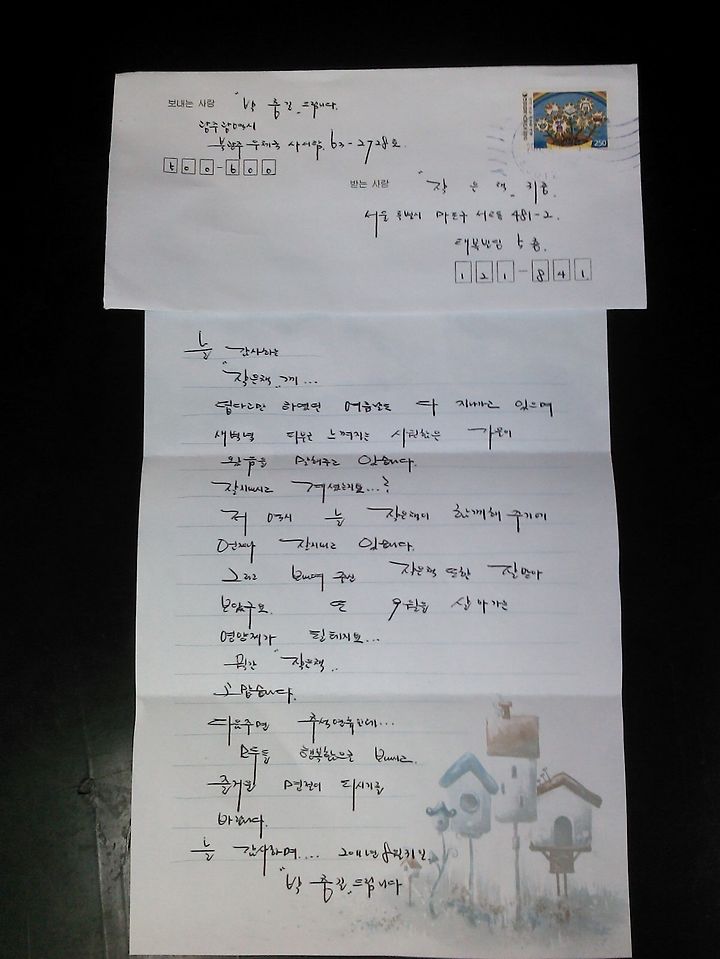 보내는 사람 "박 홍길" 드립니다.
광주광역시
북광주 우체국 사서함 63-2728호
500-600
250
받는 사람 "작 은 책" 귀중
서울 특별시 마포구 서교동 481-2.
태복빌딩 5 층
121-841
늘 감사하는
"작은책"께...
덥다고만 하였던 여름날도 다 지나가고 있으며
새벽녘 피부로 느껴지는 시원함은 가을이
왔음을 말해주고 있습니다.
잘지내시고 계셨는지요...?
저 역시 늘 작은책이 함께해 주기에
언제나 잘지내고 있습니다.
그리고 보내여 주신 작은책 또한 잘받아
보았구요. 또 9월을 살아가는
영양제가 될테지요...
월간 "작은책"
고맙습니다.
다음주면 추석연휴인데...
모두들 행복함으로 보내시고
즐거운 명절이 되시기를
바랍니다.
늘 감사하며.... 2011년 8월 31일.
"박 홍길" 드립니다